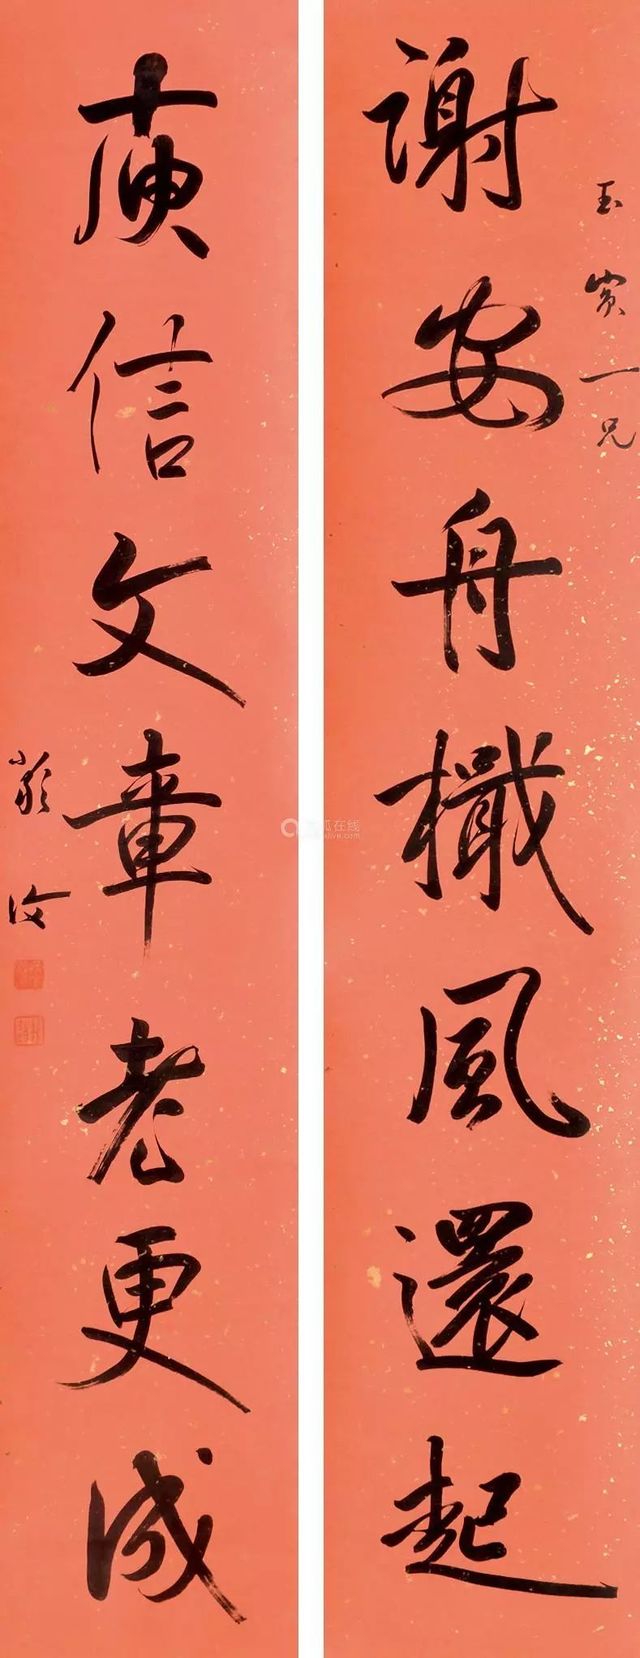 玉賓一兄
謝安舟檝風還起
庾信文章老更成